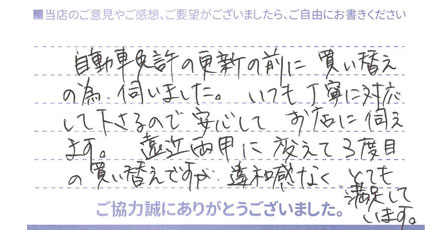 ■当店のご意見やご感想、ご要望がございましたら、ご自由にお書きください
自動車免許の更新の前に 買い替え
の為、伺いました。 いつも丁寧に対応
して下さるので安心して お店に伺え
ます。 遠近両用に変えて3度目
の買い替えですが 違和感なく とても
満足して
います。
ご協力誠にありがとうございました。